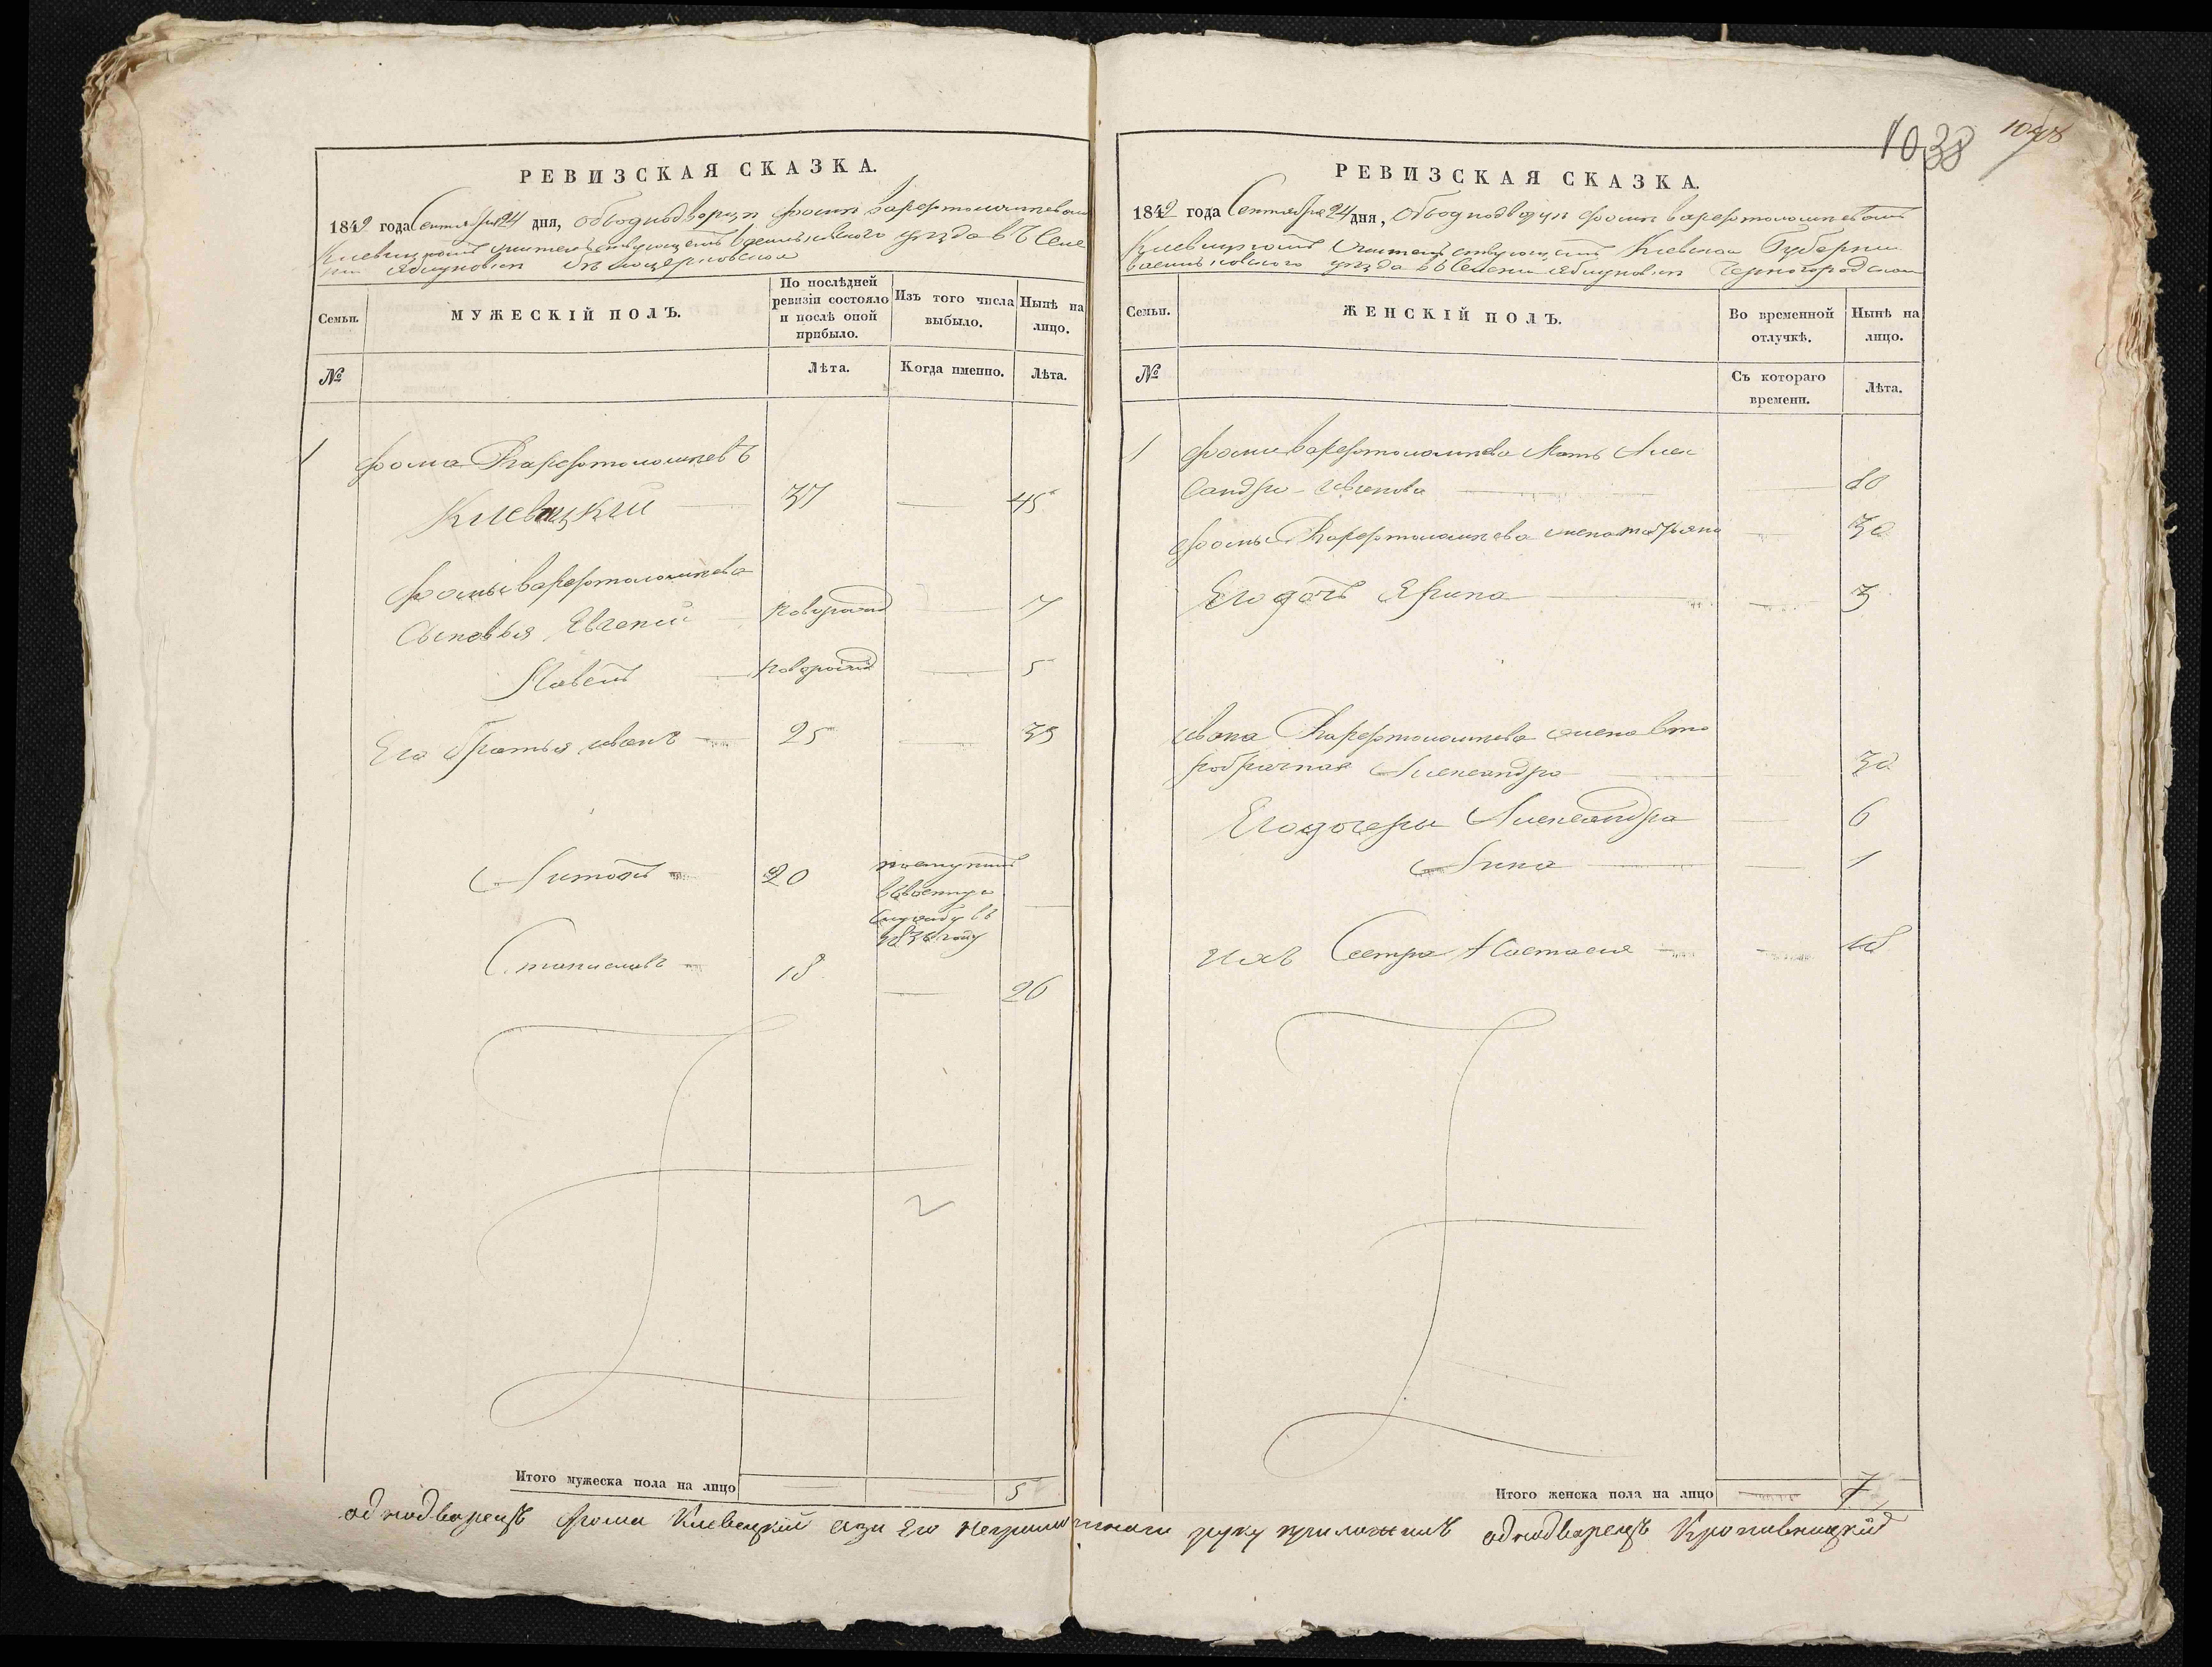 РЕВИЗСКАЯ СКАЗКА.
1842 года Сентября 24 дня, объ однодворцѣ Фомѣ Варфоломѣевомъ
Киевицкомъ жительствующемъ уѣзда въ Селе
нии
Семьи. МУЖЕСКІЙ ПОЛЪ. По послѣдней ревизіи состояло и послѣ оной прибыло. Изъ того числа выбыло. Нынѣ на лицо.
№ Лѣта. Когда именно. Лѣта.
1 Фома Варфоломѣевъ
Киевицкий 37 45
Фомы Варфоломѣева
Сыновья Евгений новорожд 7
Павелъ новорожд 5
Его братья иванъ 25 33
Антонъ 20 поступилъ
въ военную
службу въ
году
Станиславъ 18
26
2
Итого мужеска пола на лицо 5
1038
РЕВИЗСКАЯ СКАЗКА.
1842 года Сентября 24 дня, объ однодворцѣ Фомѣ Варфоломѣевомъ
Киевицкомъ жительствующемъ Киевской Губернии
уѣзда въ Селении
Семьи. ЖЕНСКІЙ ПОЛЪ. Во временной отлучкѣ. Нынѣ на лицо.
№ Съ котораго времени. Лѣта.
1 Фомы Варфоломѣева Мать Алек
сандра 80
Фомы Варфоломѣева жена Марьяна 30
Его дочь Ярина 3
ивана Варфоломѣева жена вто
робрачная Александра 30
Его дочери Александра 6
Анна 1
Ихъ Сестра Настасия 18
Итого женска пола на лицо 7
однодворецъ Фома Киевицкий а за его неграмотного руку приложилъ однодворецъ Кропивницкий